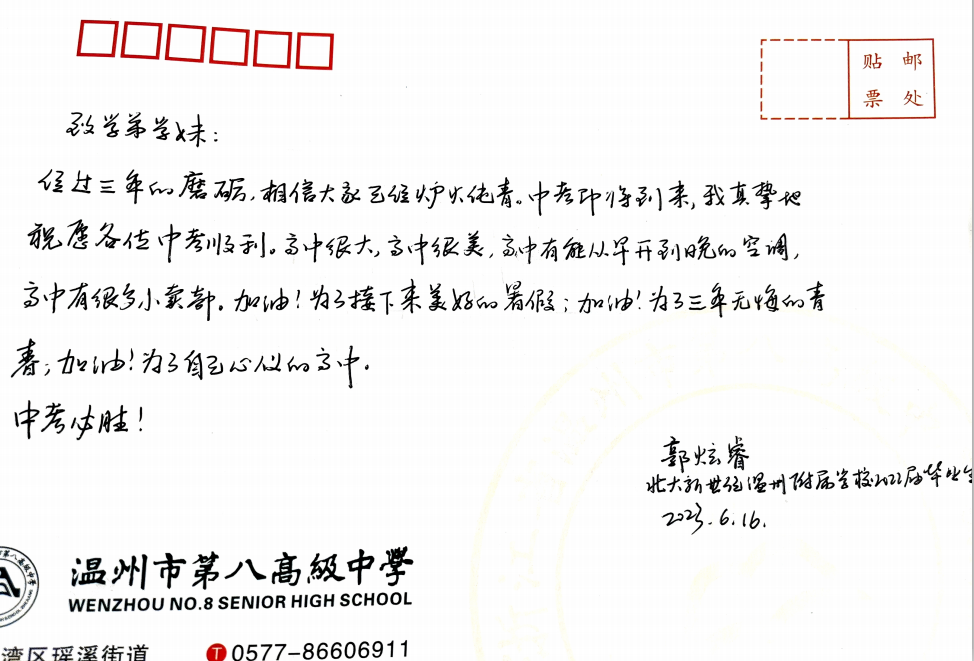 贴 邮
票 处
致学弟学妹：
经过三年的磨砺，相信大家已经炉火纯青。中考即将到来，我真挚地
祝愿各位中考顺利。高中很大，高中很美，高中有能从早开到晚的空调，
高中有很多小卖部。加油！为了接下来美好的暑假；加油！为了三年无悔的青
春；加油！为了自己心仪的高中。
中考必胜！
郭炫睿
北大新世纪温州附属学校2022届毕业生
2023.6.16.
温州市第八高級中學
WENZHOU NO.8 SENIOR HIGH SCHOOL
湾区瑶溪街道 T 0577-86606911